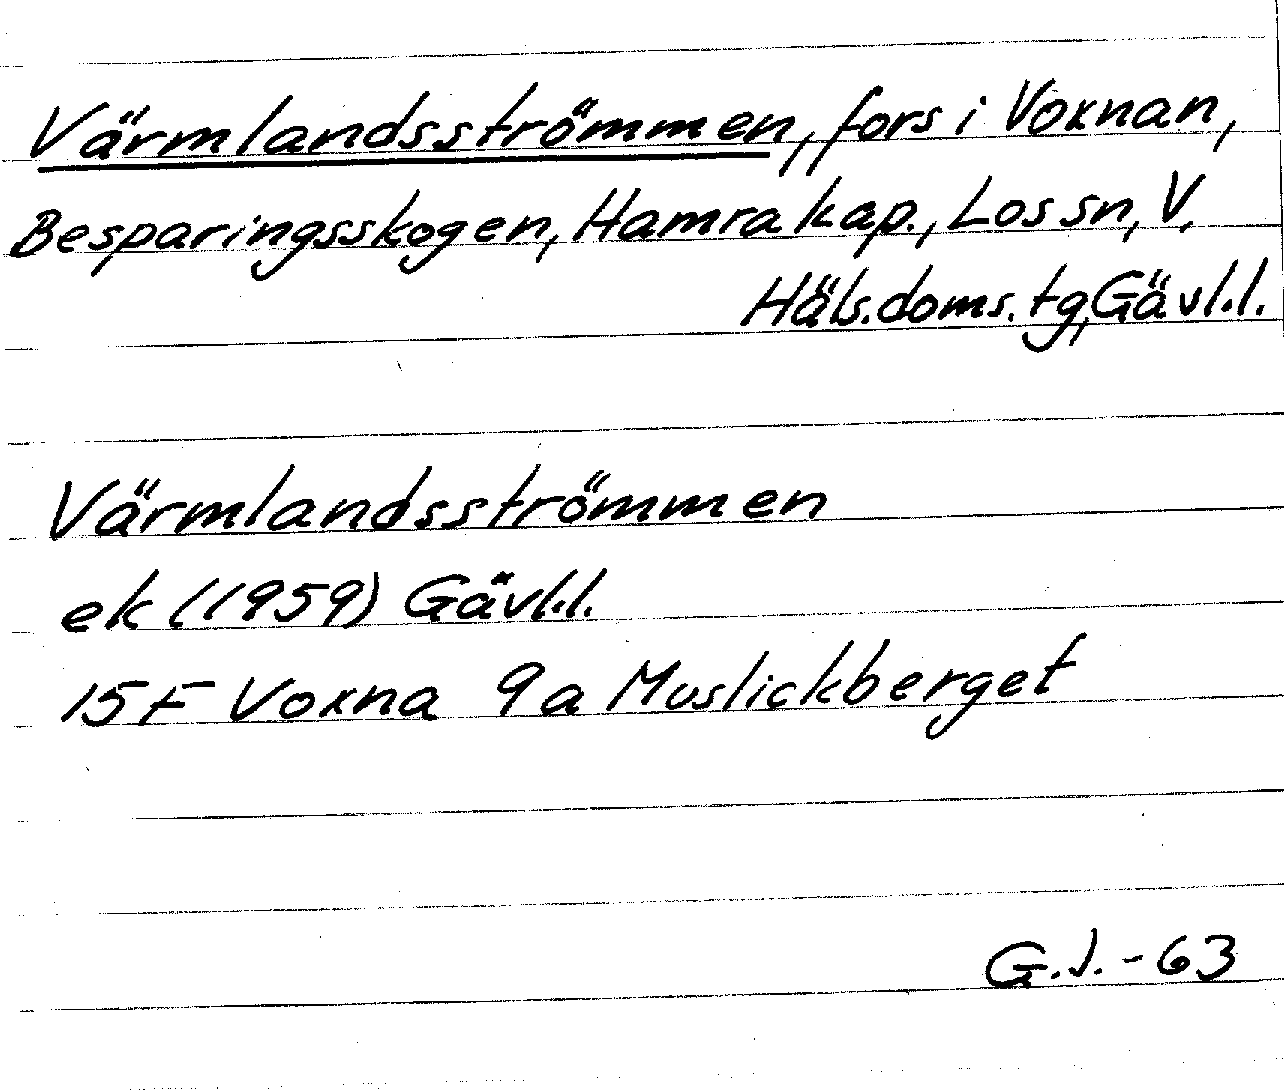 Värmlandsströmmen, fors i Voxnan,
Besparingsskogen, Hamra kap., Los sn, V.
Häls. doms. tg, Gävl. l.
Värmlandsströmmen
ek (1959) Gävl. l.
15F Voxna 9a Muslickberget
G.J. -63